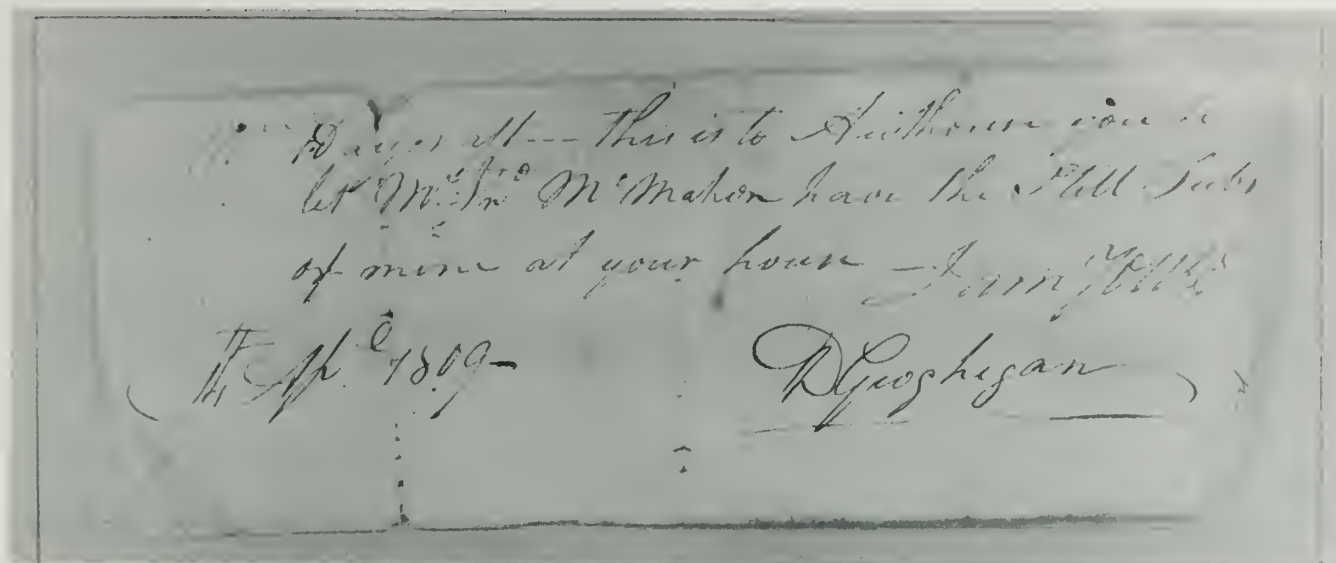 this is to Authorise you to
let Mr. Jno. McMahon have the Still Tubs
of mine at your house I am
Apl. 1809
D Geoghegan